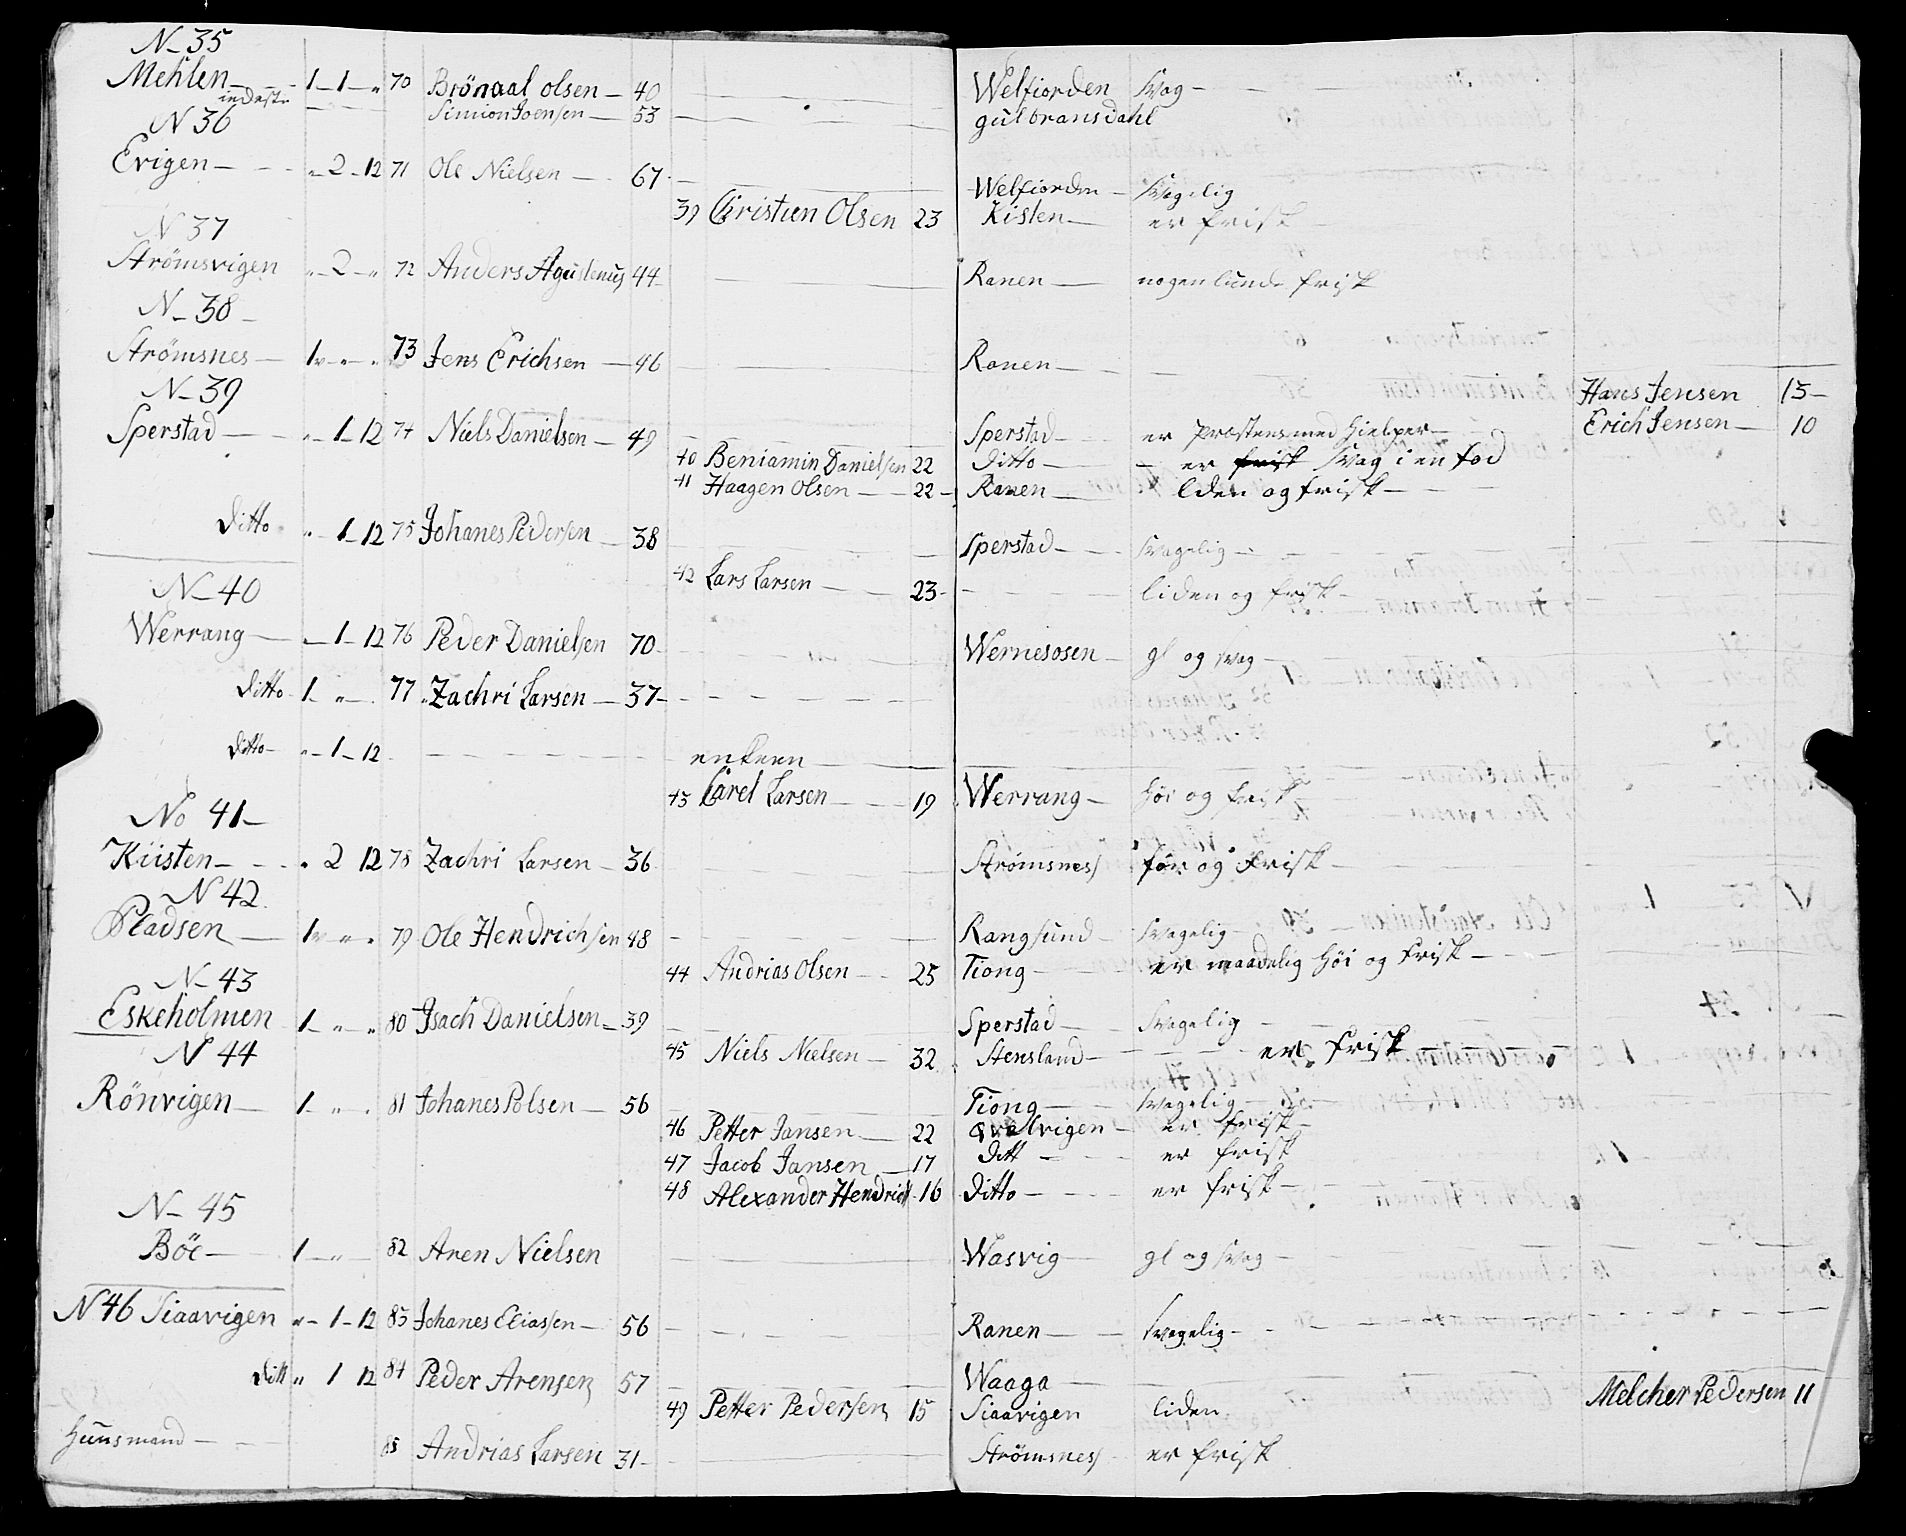 N_ 35
Mehlen - 1 - 1 - „ 70 Brönaal olsen - 40 Welfiorden Svag -
inderste Simion Joensen - 53 gulbransdahl
N 36
Evigen - - - „ - 2 - 12 71 Ole Nielsen - 67 Welfiorden - svagelig
39 Christian Olsen 23 Kisten - er frisk
N 37
Strömsvigen „ - 2 - „ 72 Anders Agustenus 44 Ranen - nogenlunde frisk
N_ 38 -
Strömsnes - 1 „ „ 73 Jens Erichsen - 46 Ranen -
N_ 39
Hans Jensen 15 -
Sperstad - - „ - 1 - 12 74 Niels Danielsen - 49 Sperstad - er Prostens med hielper - Erich Jensen - 10
40 Beniamin Danielsen 22 Ditto - er frisk svag i en fod
41 Haagen Olsen - 22 - Ranen - liden og frisk -
Ditto „ - 1 - 12 75 Johanes Pedersen - 38 Sperstad - svagelig -
42 Lars Larsen - 23 - liden og frisk -
N_ 40
Werrang - „ - 1 - 12 76 Peder Danielsen 70 - Wernesosen - gl og svag -
Ditto 1 - „ - 77 Zachri Larsen - 37 -
Ditto - „ - 1 - 12 enkeen
43 Carel Larsen - 19 Werrang - höi og frisk
No 41 -
Kiisten - - „ 2 12 78 Zachri Larsen - 36 Strømsnes för og Frisk -
N 42
Pladsen - 1 „ „ 79 Ole Hendrichsen 48 Rangsund - svagelig -
44 Andrias Olsen - 25 Tiong - er maadelig höi og frisk -
N_ 43
Eskeholmen 1 - „ „ 80 Jsach Danielsen - 39 Sperstad - svagelig
45 Niels Nielsen - 32 Stensland - er frisk
N 44
Rönvigen - 1 - „ - 81 Johanes Polsen - 56 Tiong - svagelig -
46 Petter Jansen - 22 qvalvigen - er frisk -
47 Jacob Jansen - 17 Ditt - er frisk
48 Alexander Hendrich 16 Ditto - er frisk -
N_ 45
Böe - 1 - „ - 82 Aren Nielsen Wasvig - gl og svag -
N 46 Siaavigen „ - 1 - 12 83 Johanes Eliassen - 56 Ranen - svagelig -
Ditt „ 1 12 84 Peder Arensen 57 Waaga -
49 Petter Pedersen 15 Siaavigen liden Melcher Pedersen 11
Huusmand - 85 Andrias Larsen 31 - Strømsnes er frisk